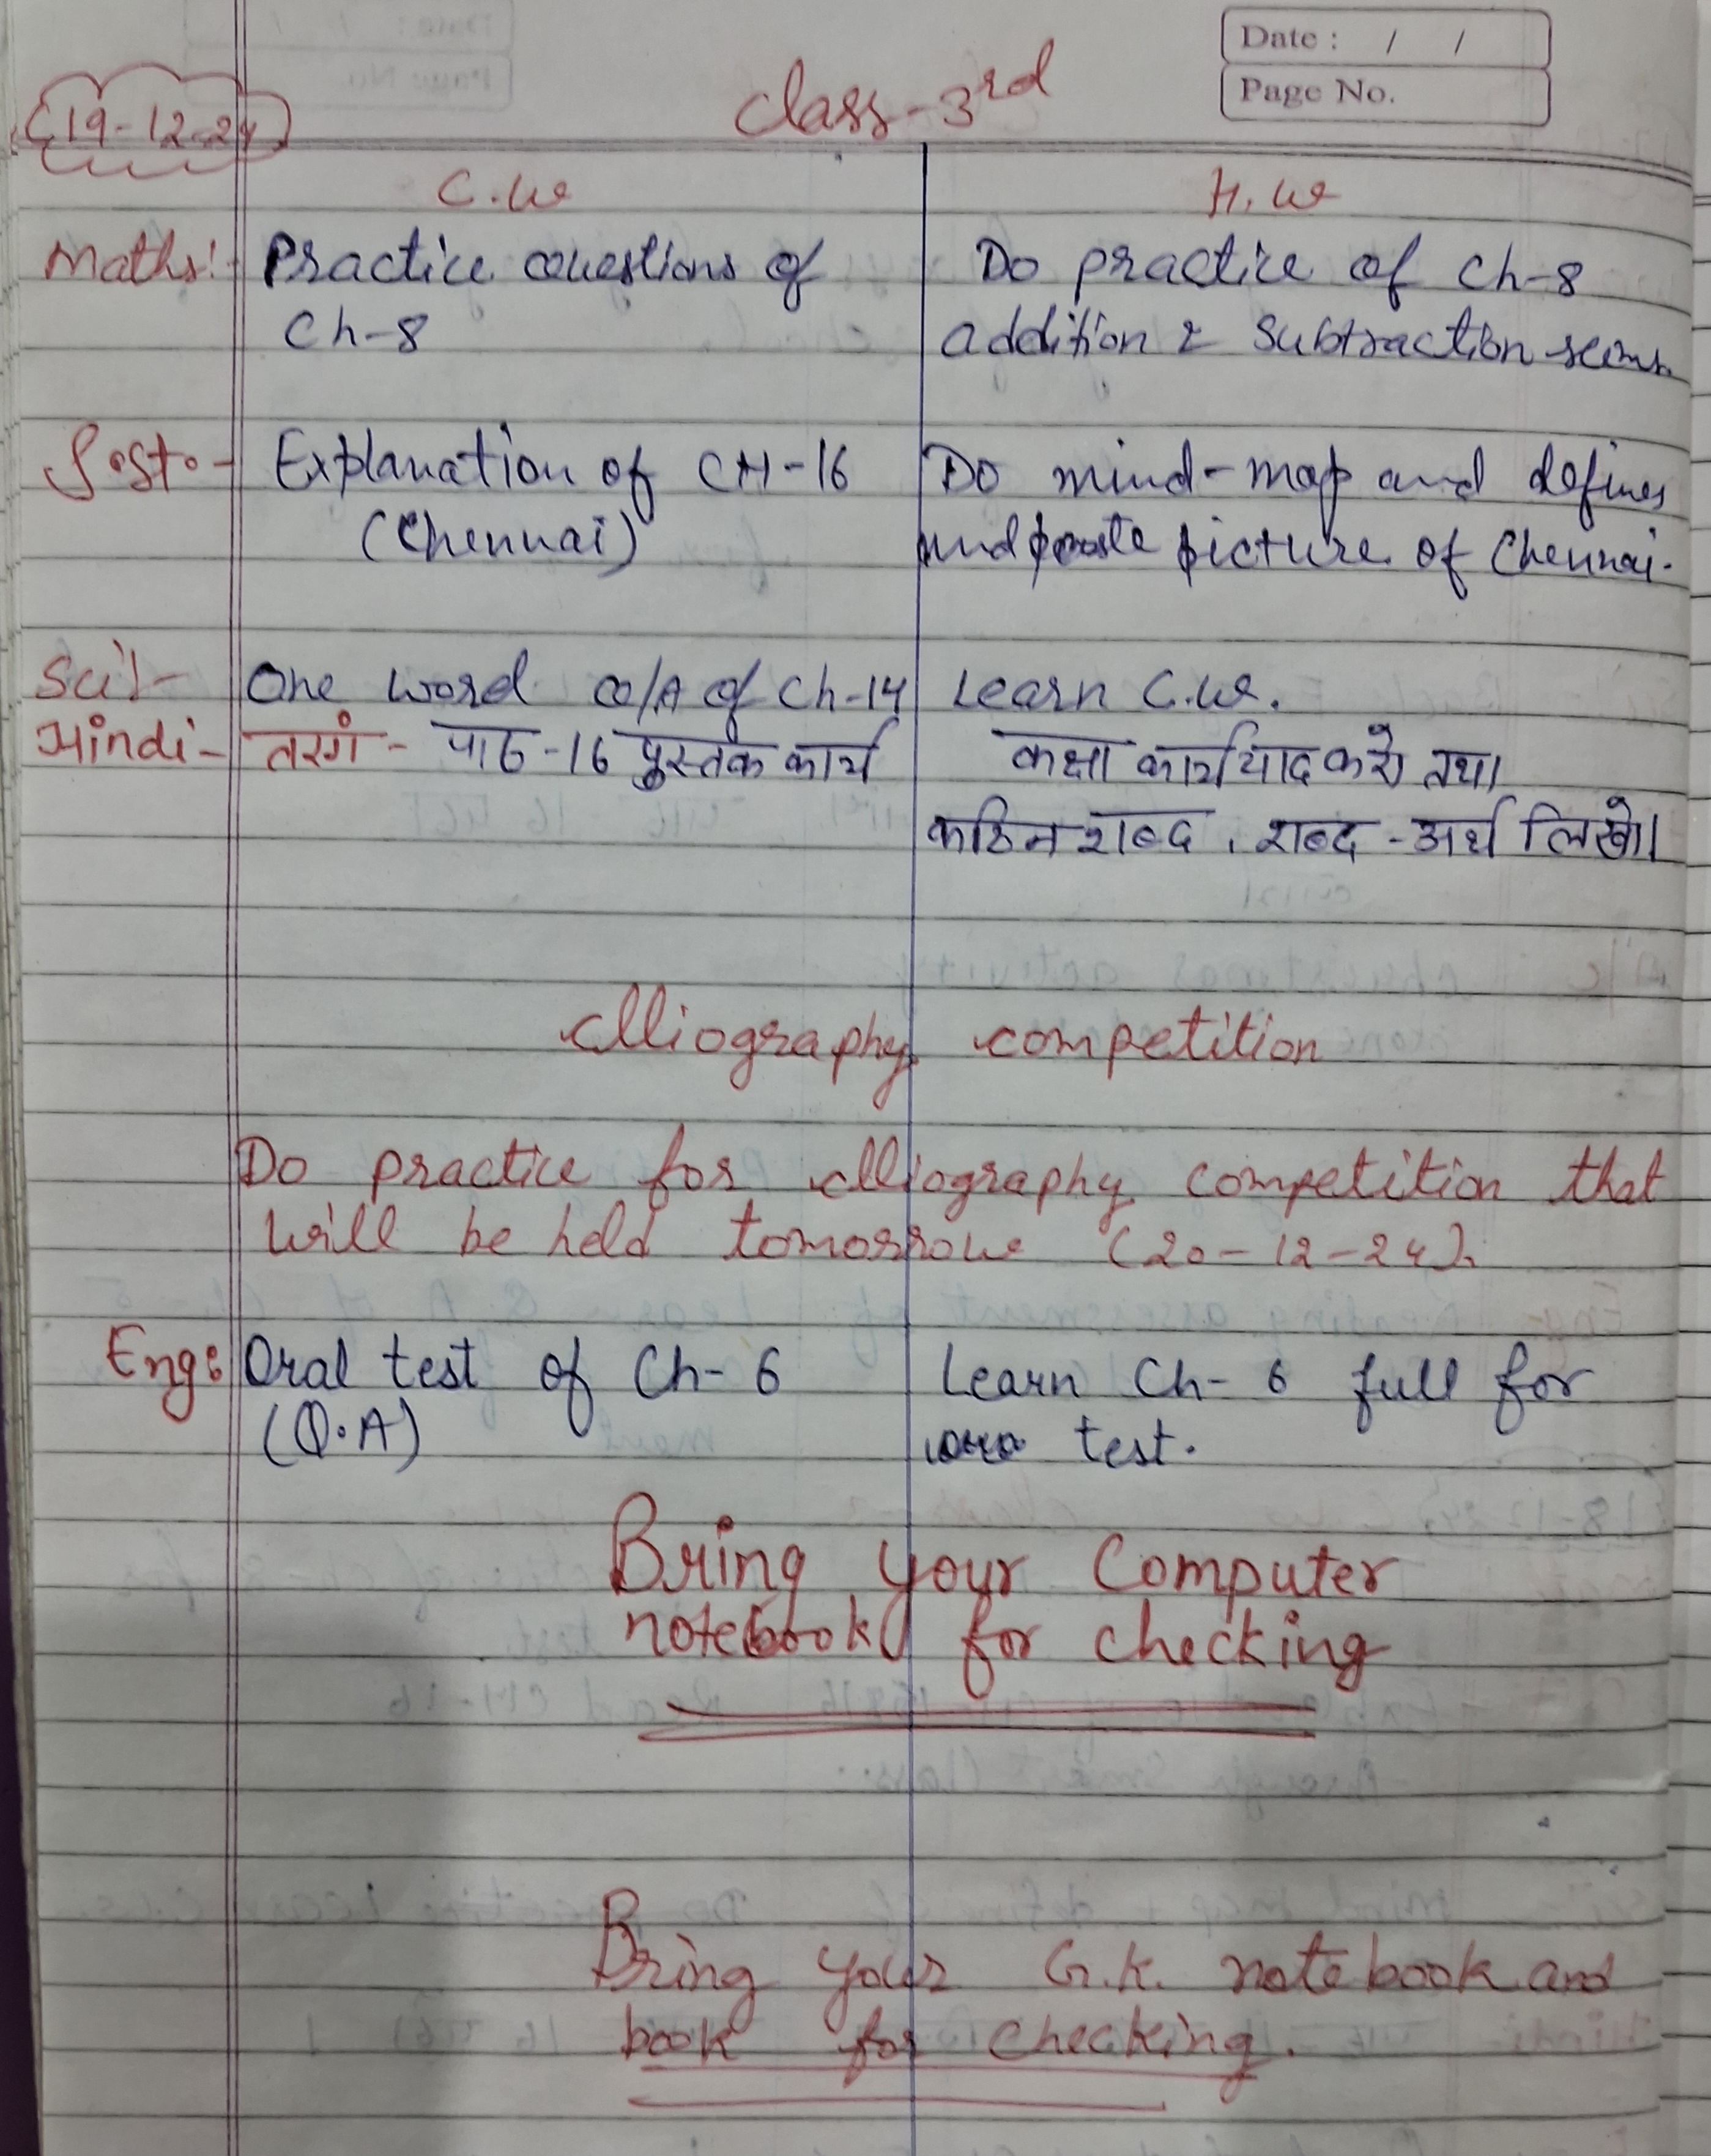 Date : / /
Page No.
Class-3rd
(19-12-24)
C.W
H.W
Maths:- Practice questions of Do practice of Ch-8
Ch-8 addition & Subtraction
S.st.- Explanation of CH-16 Do mind-map and defines
(Chennai) and paste picture of Chennai.
Sci:- One word Q/A of Ch-14 Learn C.W.
Hindi- तरंग - पाठ-16 पुस्तक कार्य कक्षा कार्य याद करो तथा
कठिन शब्द, शब्द-अर्थ लिखो।
clliography competition
Do practice for clliography competition that
will be held tomorrow (20-12-24).
Eng: Oral test of Ch-6 Learn Ch-6 full for
(Q.A) test.
Bring your Computer
notebook for checking
Bring your G.K. notebook and
book for checking.